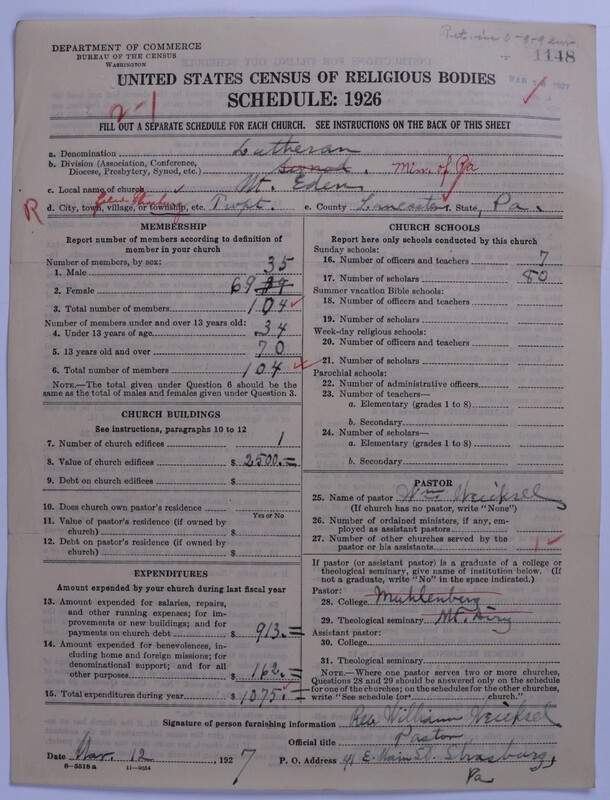 DEPARTMENT OF COMMERCE
BUREAU OF THE CENSUS
WASHINGTON
1148
UNITED STATES CENSUS OF RELIGIOUS BODIES
SCHEDULE: 1926
2-1
FILL OUT A SEPARATE SCHEDULE FOR EACH CHURCH. SEE INSTRUCTIONS ON THE BACK OF THIS SHEET
a. Denomination Lutheran
b. Division (Association, Conference, Diocese, Presbytery, Synod, etc.) Synod. Min. of Pa
c. Local name of church Mt. Eden
d. City, town, village, or township, etc. Twpt. e. County Lancaster, State, Pa.
R
MEMBERSHIP
Report number of members according to definition of member in your church
Number of members, by sex:
1. Male 35
2. Female 69
3. Total number of members 104
Number of members under and over 13 years old:
4. Under 13 years of age 34
5. 13 years old and over 70
6. Total number of members 104
NOTE.—The total given under Question 6 should be the same as the total of males and females given under Question 3.
CHURCH BUILDINGS
See instructions, paragraphs 10 to 12
7. Number of church edifices 1
8. Value of church edifices $ 2500.=
9. Debt on church edifices $
10. Does church own pastor's residence
Yes or No
11. Value of pastor's residence (if owned by church) $
12. Debt on pastor's residence (if owned by church) $
EXPENDITURES
Amount expended by your church during last fiscal year
13. Amount expended for salaries, repairs, and other running expenses; for improvements or new buildings; and for payments on church debt $ 913.=
14. Amount expended for benevolences, including home and foreign missions; for denominational support; and for all other purposes $ 162.=
15. Total expenditures during year $ 1075.=
CHURCH SCHOOLS
Report here only schools conducted by this church
Sunday schools:
16. Number of officers and teachers 7
17. Number of scholars 80
Summer vacation Bible schools:
18. Number of officers and teachers
19. Number of scholars
Week-day religious schools:
20. Number of officers and teachers
21. Number of scholars
Parochial schools:
22. Number of administrative officers
23. Number of teachers—
a. Elementary (grades 1 to 8)
b. Secondary
24. Number of scholars—
a. Elementary (grades 1 to 8)
b. Secondary
PASTOR
25. Name of pastor Wm Weicksel
(If church has no pastor, write "None")
26. Number of ordained ministers, if any, employed as assistant pastors
27. Number of other churches served by the pastor or his assistants 1
If pastor (or assistant pastor) is a graduate of a college or theological seminary, give name of institution below. (If not a graduate, write "No" in the space indicated.)
Pastor:
28. College Muhlenberg
29. Theological seminary Mt. Airy
Assistant pastor:
30. College
31. Theological seminary
NOTE.—Where one pastor serves two or more churches, Questions 28 and 29 should be answered only on the schedule for one of the churches; on the schedules for the other churches, write "See schedule for church."
Signature of person furnishing information Rev William Weicksel
Official title Pastor
Date Mar. 12 1927 P. O. Address 41 E. Main St. Strasburg, Pa
8-5518 a 11-9554